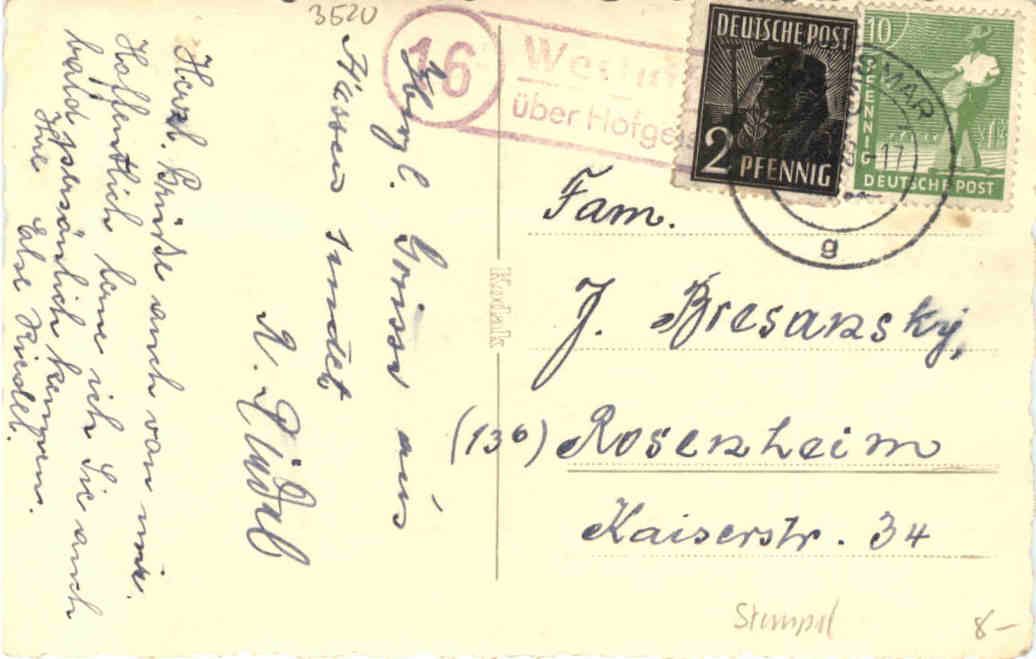 3520
16
über Hofgeis
DEUTSCHE POST
2 PFENNIG
10
PFENNIG
DEUTSCHE POST
MAR
-17
g
Herzl. Grüsse aus
Hessen sendet
R. Riedel
Herzl. Grüße auch von mir.
Hoffentlich lerne ich Sie auch
bald persönlich kennen.
Ihre Else Riedel.
Kodak
Fam.
J. Bresansky,
(13b) Rosenheim
Kaiserstr. 34
Stempel
8-